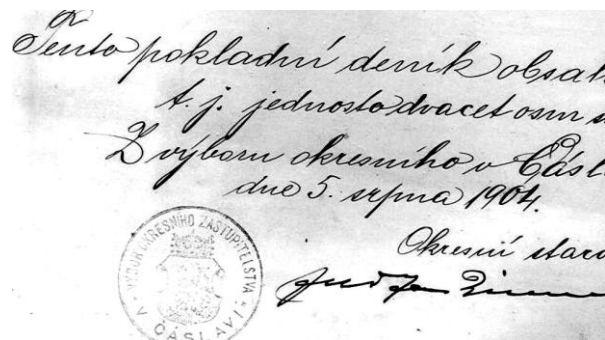 Tento pokladní deník obsah
t. j. jednostodvacet osm s
Z výboru okresního v Čásl
dne 5. srpna 1904.
Okresní staro
VÝBOR OKRESNÍHO ZASTUPITELSTVA
V ČÁSLAVI